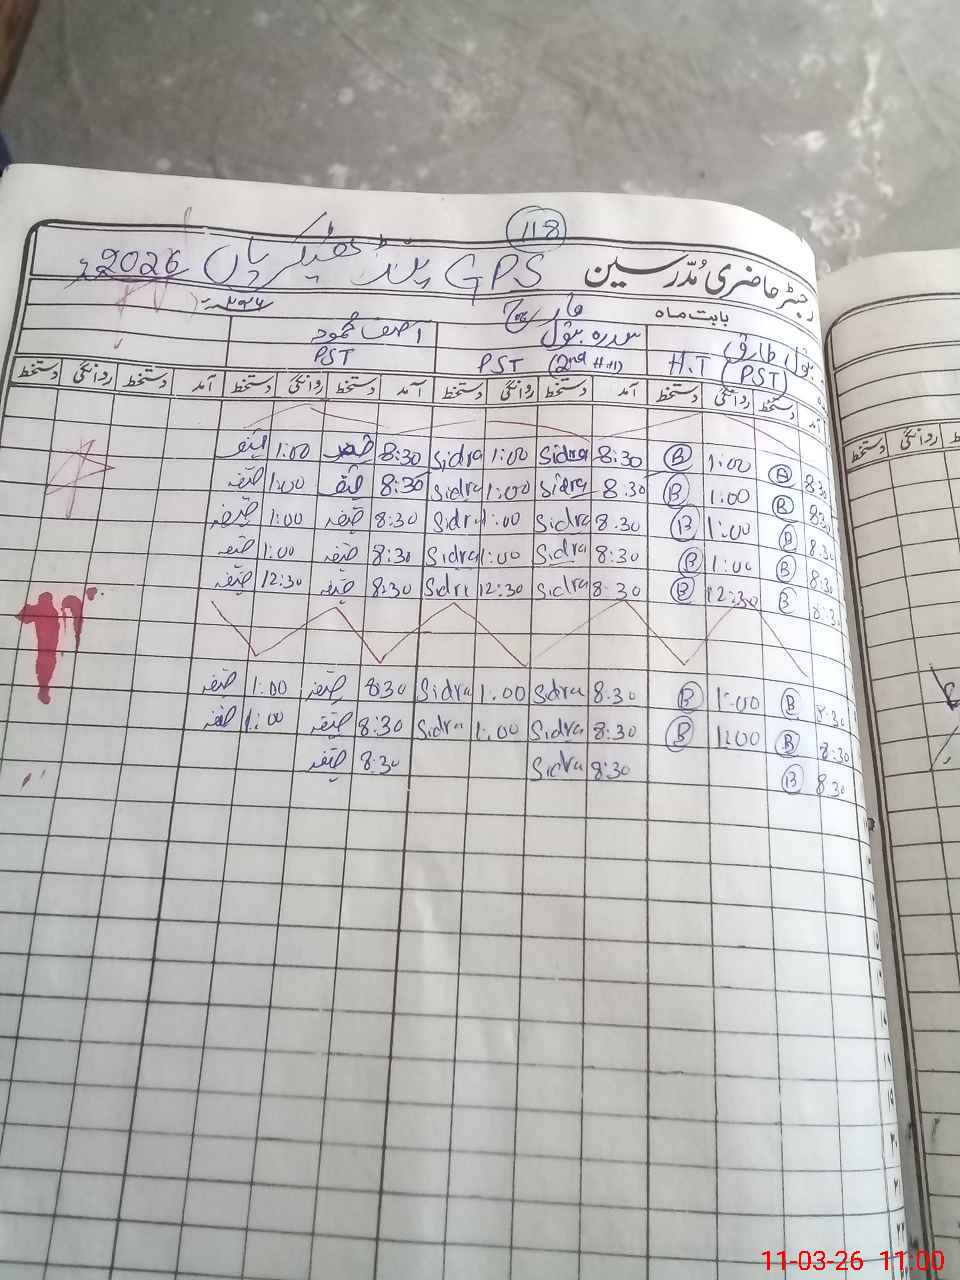 118
رجسٹر حاضری مدرسین GPS پنڈ ٹھیکریاں 2026ء
بابت ماہ مارچ ۲۰۲۶ء
بتول طارق سدرہ بتول آصف محمود
H.T (PST) PST (2nd H.T) PST
آمد دستخط روانگی دستخط آمد دستخط روانگی دستخط آمد دستخط روانگی دستخط آمد دستخط روانگی دستخط
8:30 B 1:00 B 8:30 Sidra 1:00 Sidra 8:30 1:00
8:30 B 1:00 B 8:30 Sidra 1:00 Sidra 8:30 1:00
8:30 B 1:00 B 8:30 Sidra 1:00 Sidra 8:30 1:00
8:30 B 1:00 B 8:30 Sidra 1:00 Sidra 8:30 1:00
8:30 B 12:30 B 8:30 Sidra 12:30 Sidra 8:30 12:30
8:30 B 1:00 B 8:30 Sidra 1:00 Sidra 8:30 1:00
8:30 B 1:00 B 8:30 Sidra 1:00 Sidra 8:30 1:00
8:30 B 8:30 Sidra 8:30
روانگی دستخط
11-03-26 11:00